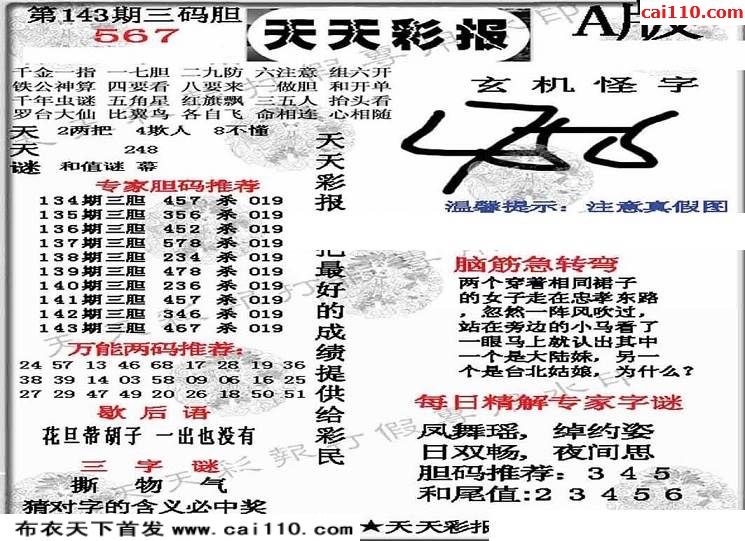 第143期三码胆
567
天天彩报
A版
cai110.com
千金一指 一七胆 二九防 六注意 组六开
铁公神算 四要看 八要来 一做胆 和开单
千年虫谜 五角星 红旗飘 三五人 抬头看
罗台大仙 比翼鸟 各自飞 命相连 心相随
天 2两把 4欺人 8不懂
天 248
谜 和值谜 幕
专家胆码推荐
134期三胆 457 杀 019
135期三胆 356 杀 019
136期三胆 452 杀 019
137期三胆 578 杀 019
138期三胆 234 杀 019
139期三胆 478 杀 019
140期三胆 236 杀 019
141期三胆 457 杀 019
142期三胆 346 杀 019
143期三胆 467 杀 019
万能两码推荐:
24 57 13 46 68 17 28 19 36
38 39 14 03 58 09 06 16 25
27 29 47 49 20 26 18 50 51
歇后语
花旦带胡子 一出也没有
三字谜
撕 物 气
猜对字的含义必中奖
天天彩报
把最好的成绩提供给彩民
玄机怪字
温馨提示: 注意真假图
脑筋急转弯
两个穿着相同裙子
的女子走在忠孝东路
，忽然一阵风吹过,
站在旁边的小马看了
一眼马上就认出其中
一个是大陆妹，另一
个是台北姑娘，为什么?
每日精解专家字谜
凤舞瑶，绰约姿
日双畅，夜间思
胆码推荐: 3 4 5
和尾值:2 3 4 5 6
布衣天下首发 www.cai110.com
★天天彩报